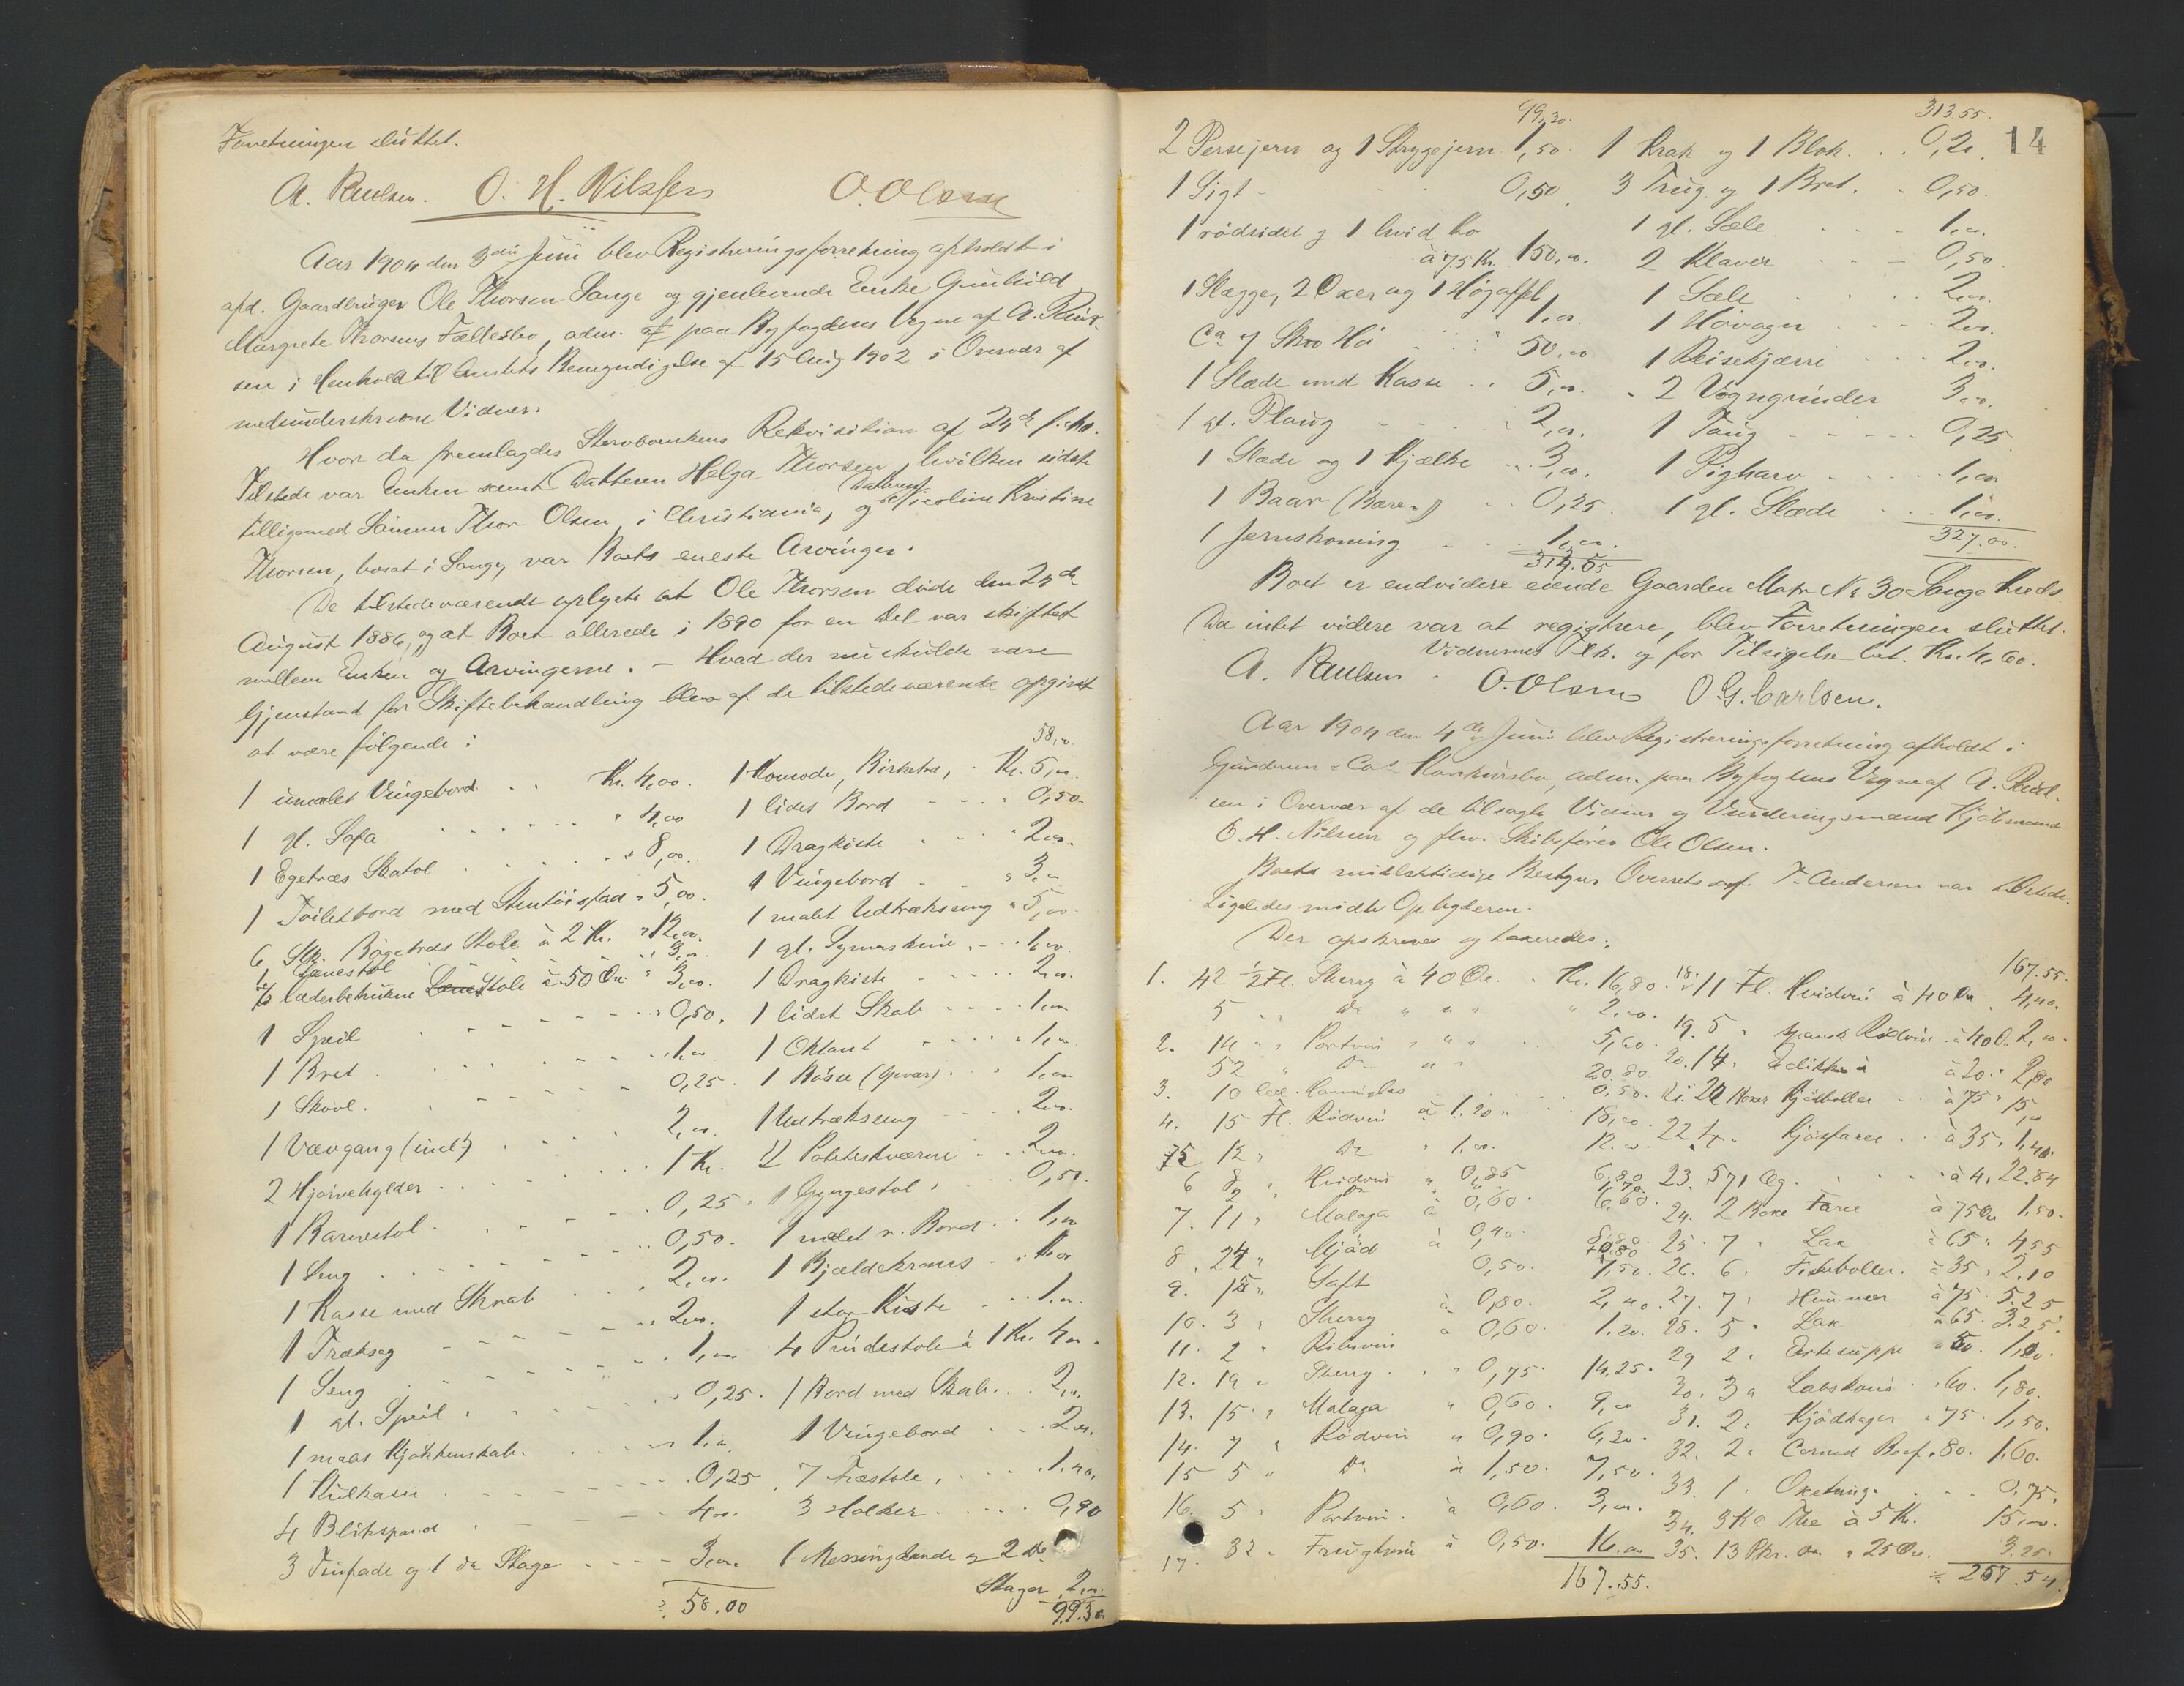 Forretningen sluttet.
A. Paulsen. O. H. Nilssen O. Olsen
Aar 1904 den 3die Juni blev Registreringsforretning afholdt i
afd. Gaardbruger Ole Thorsen Sange og gjenlevende Enke Gunhild
Margrete Thorsens Fællesbo, adm. paa Byfogdens Vegne af A. Paul-
sen i Henhold til Amtets Bemyndigelse af 15 Aug 1902 i Overvær af
medunderskrevne Vidner.
Hvor da fremlagdes Stervboenkens Rekvisition af
Tilstede var Enken samt Datteren Helga Thorsen, hvilken sidste
tilligemed Sönnen Thor Olsen, i Christiania, og Datteren Nicoline Kristine
Thorsen, bosat i Sange, var Boets eneste Arvinger.
De tilstedeværende oplyste at Ole Thorsen döde den
August 1886, og at Boet allerede i 1890 for en Del var skiftet
mellem Enken og Arvingerne. – Hvad der nu skulde være
Gjenstand for Skiftebehandling blev af de tilstedeværende opgivet
at være følgende:
58,00
1 umalet Vingebord . . Kr. 4,00.
1 gl. Sofa . . . " 4,00
1 Egetræs Skatol . . . " 8,00.
1 Toiletbord med Stentöisfad " 5,00.
6 Stk. Bøgetræs Stole à 2 Kr. " 12,00.
1 Lænestol . . " 3,00.
6 læderbetrukne Stole à 50 Øre " 3,00.
1 Speil . . . " 0,50.
1 Bret . . . " 1,00
1 Skovl . . . 0,25.
1 Vævgang (incl.) . . . 2,00.
2 Hjørnehylder . . . 1 Kr.
1 Barnestol . . . 0,25.
1 Seng . . . 0,50.
1 Kasse med Skrab . . . 2,00.
1 Træseg . . . 2,00.
1 Seng . . . 1,00
1 gl. Speil . . . " 0,25.
1 Kjøkkenskab. . . . 1,00
1 Kulkasse . . . 0,25
4 Blikspand . . . 4,00.
3 Tinfade og 1 do Stage . . . 3,00.
58.00
1 Komode, Birketræ, . Kr. 5,00.
1 lidet Bord . . . 0,50.
1 Dragkiste . . . " 2,00.
1 Vingebord . . " 3,00
1 malet Udtræksseng " 5,00.
1 gl. Symaskine . . . 1,00
1 Dragkiste . . . 2,00.
1 lidet Skab . . . 1,00
1 Oktant . . . 1,00
1 Bösse (Gevær) . . . 1,00
1 Udtræksseng . . . 2,00.
1 Poteteskværn . . . 2,00.
1 Gyngestol . . . 0,50.
1 malet r. Bord . . 1,00
1 Bjældekrans . . 1,00
1 stor Kiste . . . 1,00.
4 Pindestole à 1 Kr. 4,00.
1 Bord med Skab . . 2,00.
1 Vingebord . . . 2,00.
7 Træstole . . . 1,40,
3 Holker . . . 0,90
1 Messinglande og 2 Do
Stager 2,00.
99.30.
14
99,30.
2 Persejern og 1 Strygejern 1,50.
1 Sigt . . . 0,50.
1 rödsidet og 1 hvid Ko
à 75 Kr. 150,00.
1 Slægge, 2 Oxer og 1 Högaffel
1,00.
Ca Hö . . . 50,00
1 Slæde med Kasse . . 5,00.
1 gl. Plaug . . . 2,00.
1 Slæde og 1 Kjælke . . 3,00.
1 Baar (Bærer) . . 0,25.
1 Jernskoning . . . 1,00.
314.55
313.55.
1 Krak og 1 Blok. . . 0,20.
3 Trug og 1 Bret. . 0,50.
1 gl. Sæle . . . 1,00.
2 Klaver . . . 0,50.
1 Sæle . . . 2,00.
1 Hövogn . . . 2,00.
1 Reisekjærre . . . 2,00.
2 Vogngrinder 3,00.
1 Taug . . . 0,25
1 Pigharv . . . 1,00
1 gl. Slæde . . . 1,00.
327.00.
Boet er endvidere eiende Gaarden Matr. No 30 Sange Kreds.
Da intet videre var at registrere, blev Forretningen sluttet.
Vidnernes Tilh. og for Tilsigelse bet. Kr. 4,60.
A. Paulsen. O. Olsen O. G. Carlsen.
Aar 1904 den 4de Juni blev Registreringsforretning afholdt i
Gundersen & Co's Konkursbo, adm. paa Byfogdens Vegne af A. Paul-
sen i Overvær af de tilsagte Vidner og Vurderingsmænd Kjöbmand
O. H. Nilssen og fhv. Skibsfører Ole Olsen.
Boets midlertidige Bestyrer Overretssagf. T. Andersen var tilstede.
Ligeledes mödte Opbyderen.
Der opskreves og taxeredes:
1. 42 1/2 Fl. Sherry à 40 Øre. . Kr. 16,80.
5 " Do " " " " 2,00.
2. 14 " " Portvin " " " 5,60.
52 " Do " " 20.80
3. 10 . . . 0.50.
4. 15 Fl. Rödvin à 1.20 " . . 18,00.
5 12 " Do " 1.00. 12.00.
6 8 " Hvidvin " 0,85 6.80
2 " Do " 1,70.
7. 11 " Malaga à 0,60. 6.60.
8. 22 " Mjöd à 0,40. 8.80
9. 15 " Saft 0,50. 7,50.
10. 3 " Sherry à 0,80. 2,40.
11. 2 " Ribsvin à 0,60. 1.20.
12. 19 " Sherry . " 0,75. 14,25.
13. 15 " Malaga " 0,60. 9,00
14. 7 " Rödvin " 0,90. 6,30.
15 5 " Do à 1,50. 7,50.
16. 5 " Portvin. à 0,60. 3,00.
17. 32 " Frugtvin à 0,50. 16.00
167.55.
167.55.
18. 11 Fl. Hvidvin à 40 Øre 4,40.
19. 5 " spansk Rödvin à 40 Ø. 2,00.
20. 14 " Eddike à à 20 " 2,80
21. 20 Boxer Kjödboller . . à 75 " 15,00
22 4 " Kjödfarce . . à 35. 1,40
23. 571 Æg. . . . à 4. 22.84
24. 2 Boxe Farce à 75 Øre 1,50.
25. 7 " Lax à 65 " 4,55
26. 6 " Fiskeboller. à 35 " 2.10
27. 7 " Hummer à 75. 5.25
28. 5 " Lax à 65. 3.25.
29 2 " Ertesuppe
30. 3 " Labskous . 60. 1,80.
31. 2 " Kjödkager " 75. 1,50.
32. 2 " Corned Beef. 80. 1,60.
33. 1 " Oxetunge. . . . 0.75.
34. 3 Kg The à 5 Kr. 15,00.
35. 13 Pkr. Do " 25 Øre. 3.25.
257.54.